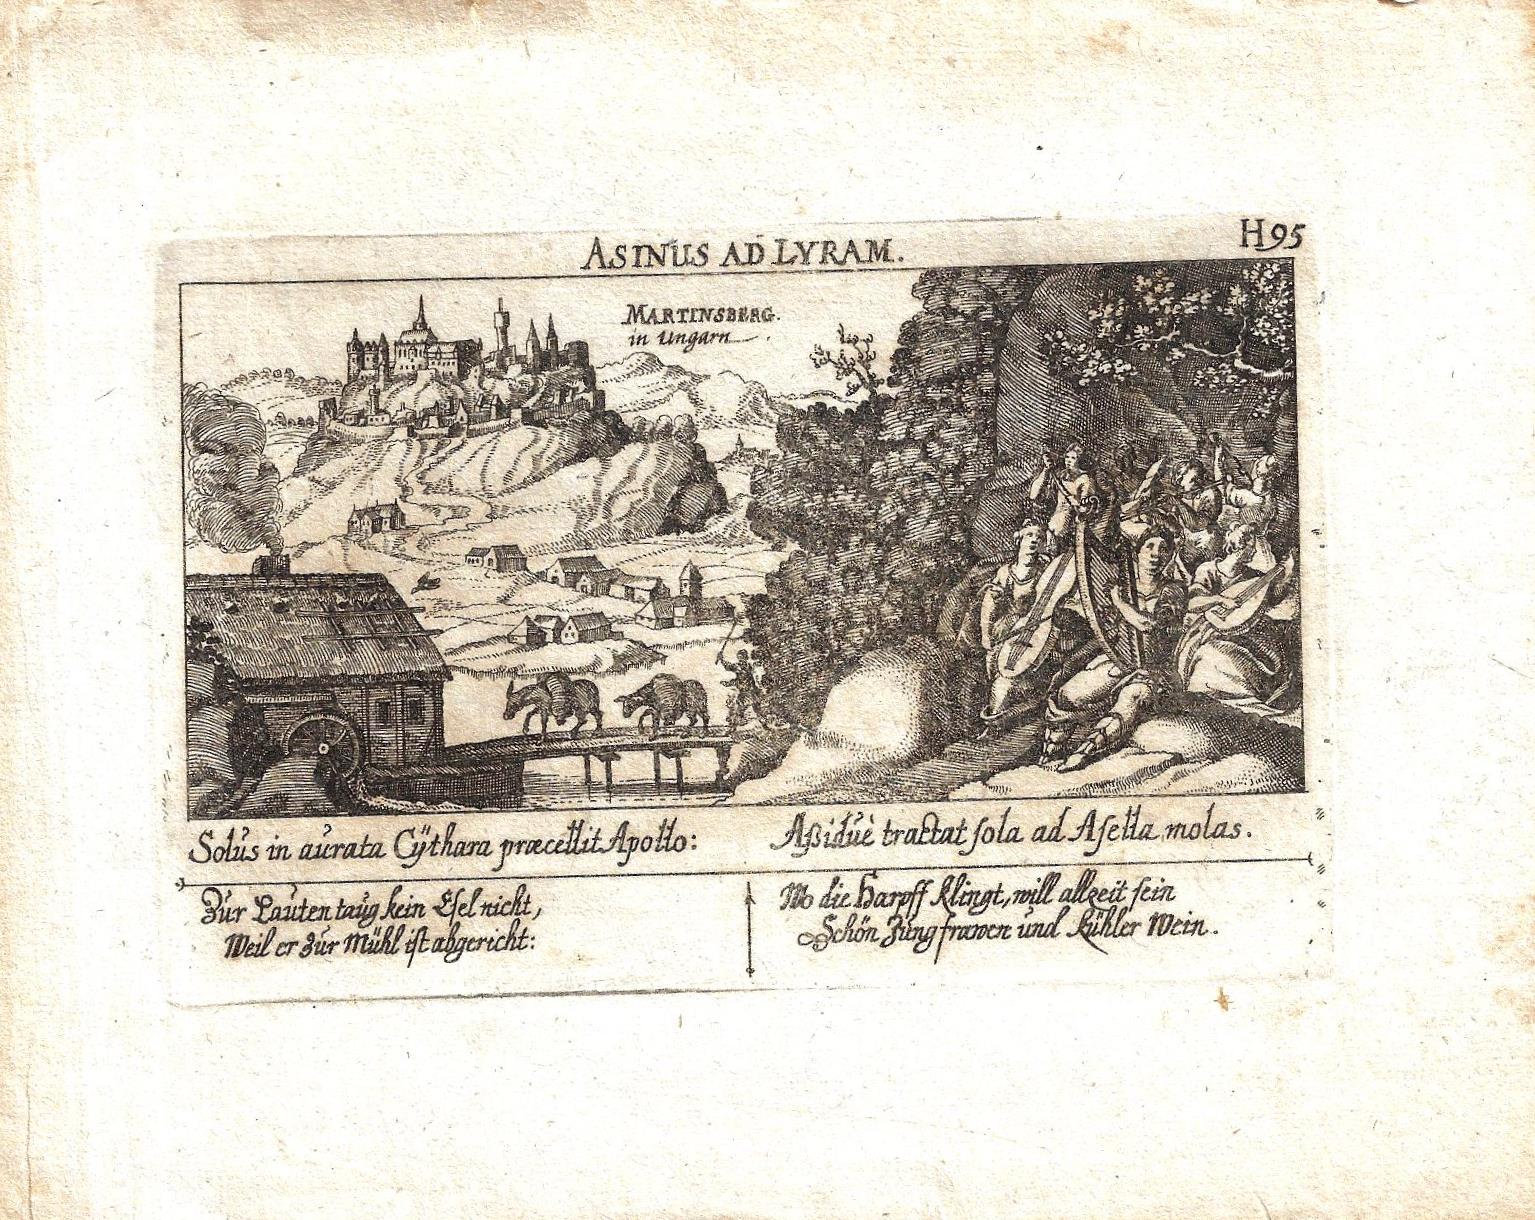 ASINUS AD LYRAM.
H95
MARTINSBERG.
in Ungarn
Solus in aurata Cÿthara præcellit Apollo:
Aßiduè tractat sola ad Asella molas.
Zur Lauten taug kein Esel nicht,
Weil er zur Mühl ist abgericht:
Wo die Harpff klingt, will allzeit sein
Schön Jungfrawen und kühler Wein.